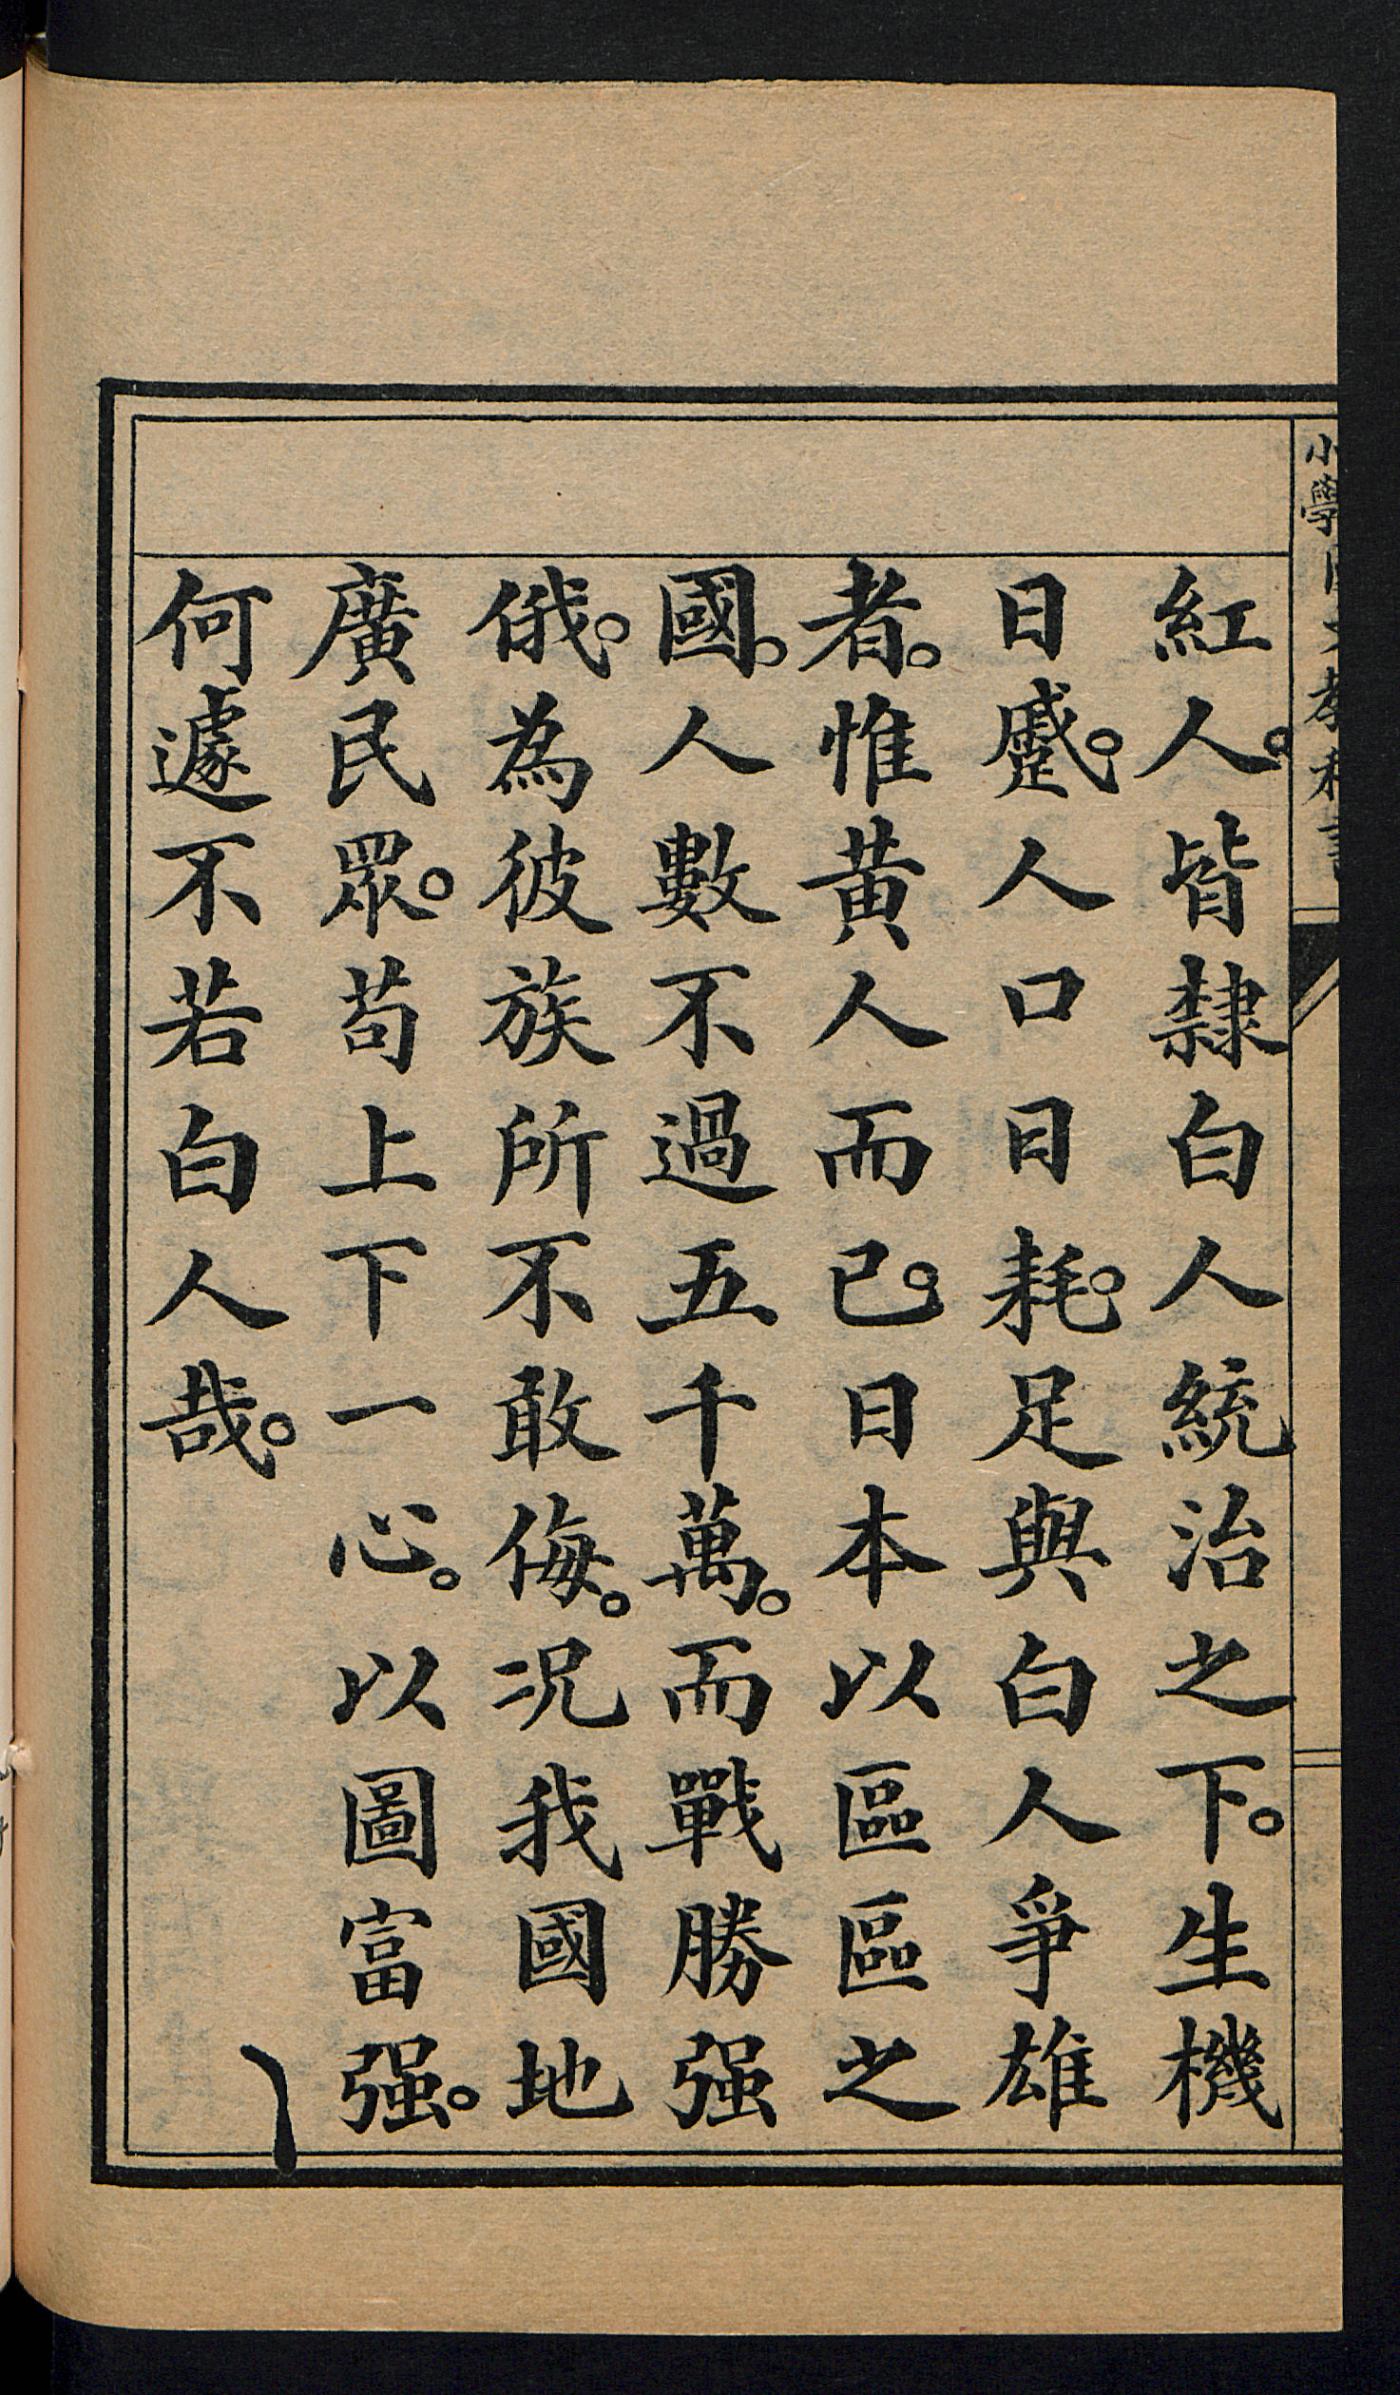 小學國文教科書
紅人。皆隸白人統治之下。生機
日蹙。人口日耗。足與白人爭雄
者。惟黃人而已。日本以區區之
國。人數不過五千萬。而戰勝强
俄。為彼族所不敢侮。况我國地
廣民眾。苟上下一心。以圖富强。
何遽不若白人哉。